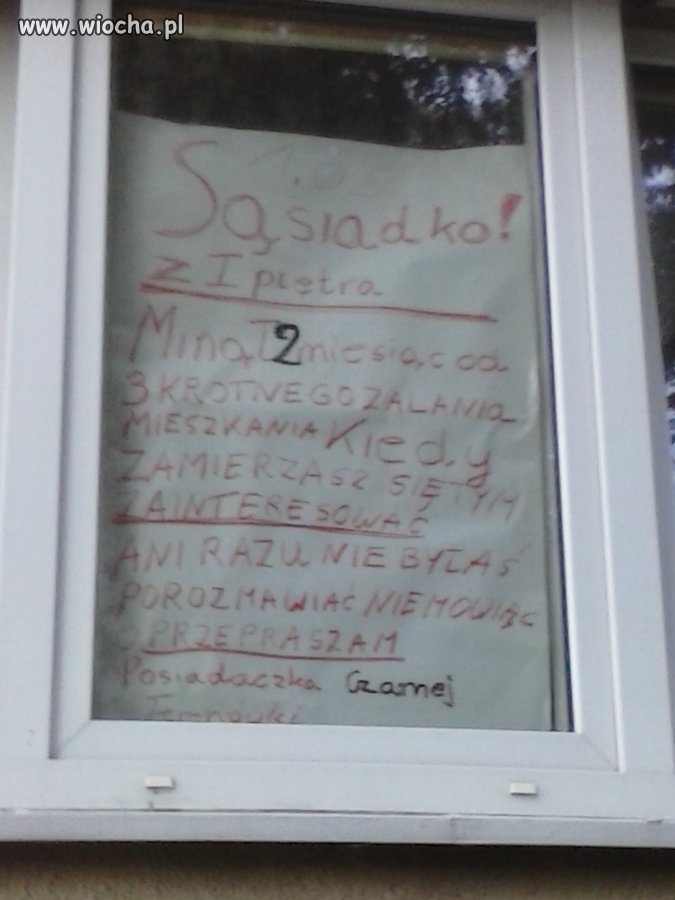 www.wiocha.pl
Sąsiadko!
z I piętra
Minął 2 miesiąc od
3 KROTNEGO ZALANIA
MIESZKANIA Kiedy
ZAMIERZASZ SIĘ TYM
ZAINTERESOWAĆ
ANI RAZU NIE BYŁAŚ
POROZMAWIAĆ NIE MÓWIĄC
O PRZEPRASZAM
Posiadaczka Czarnej